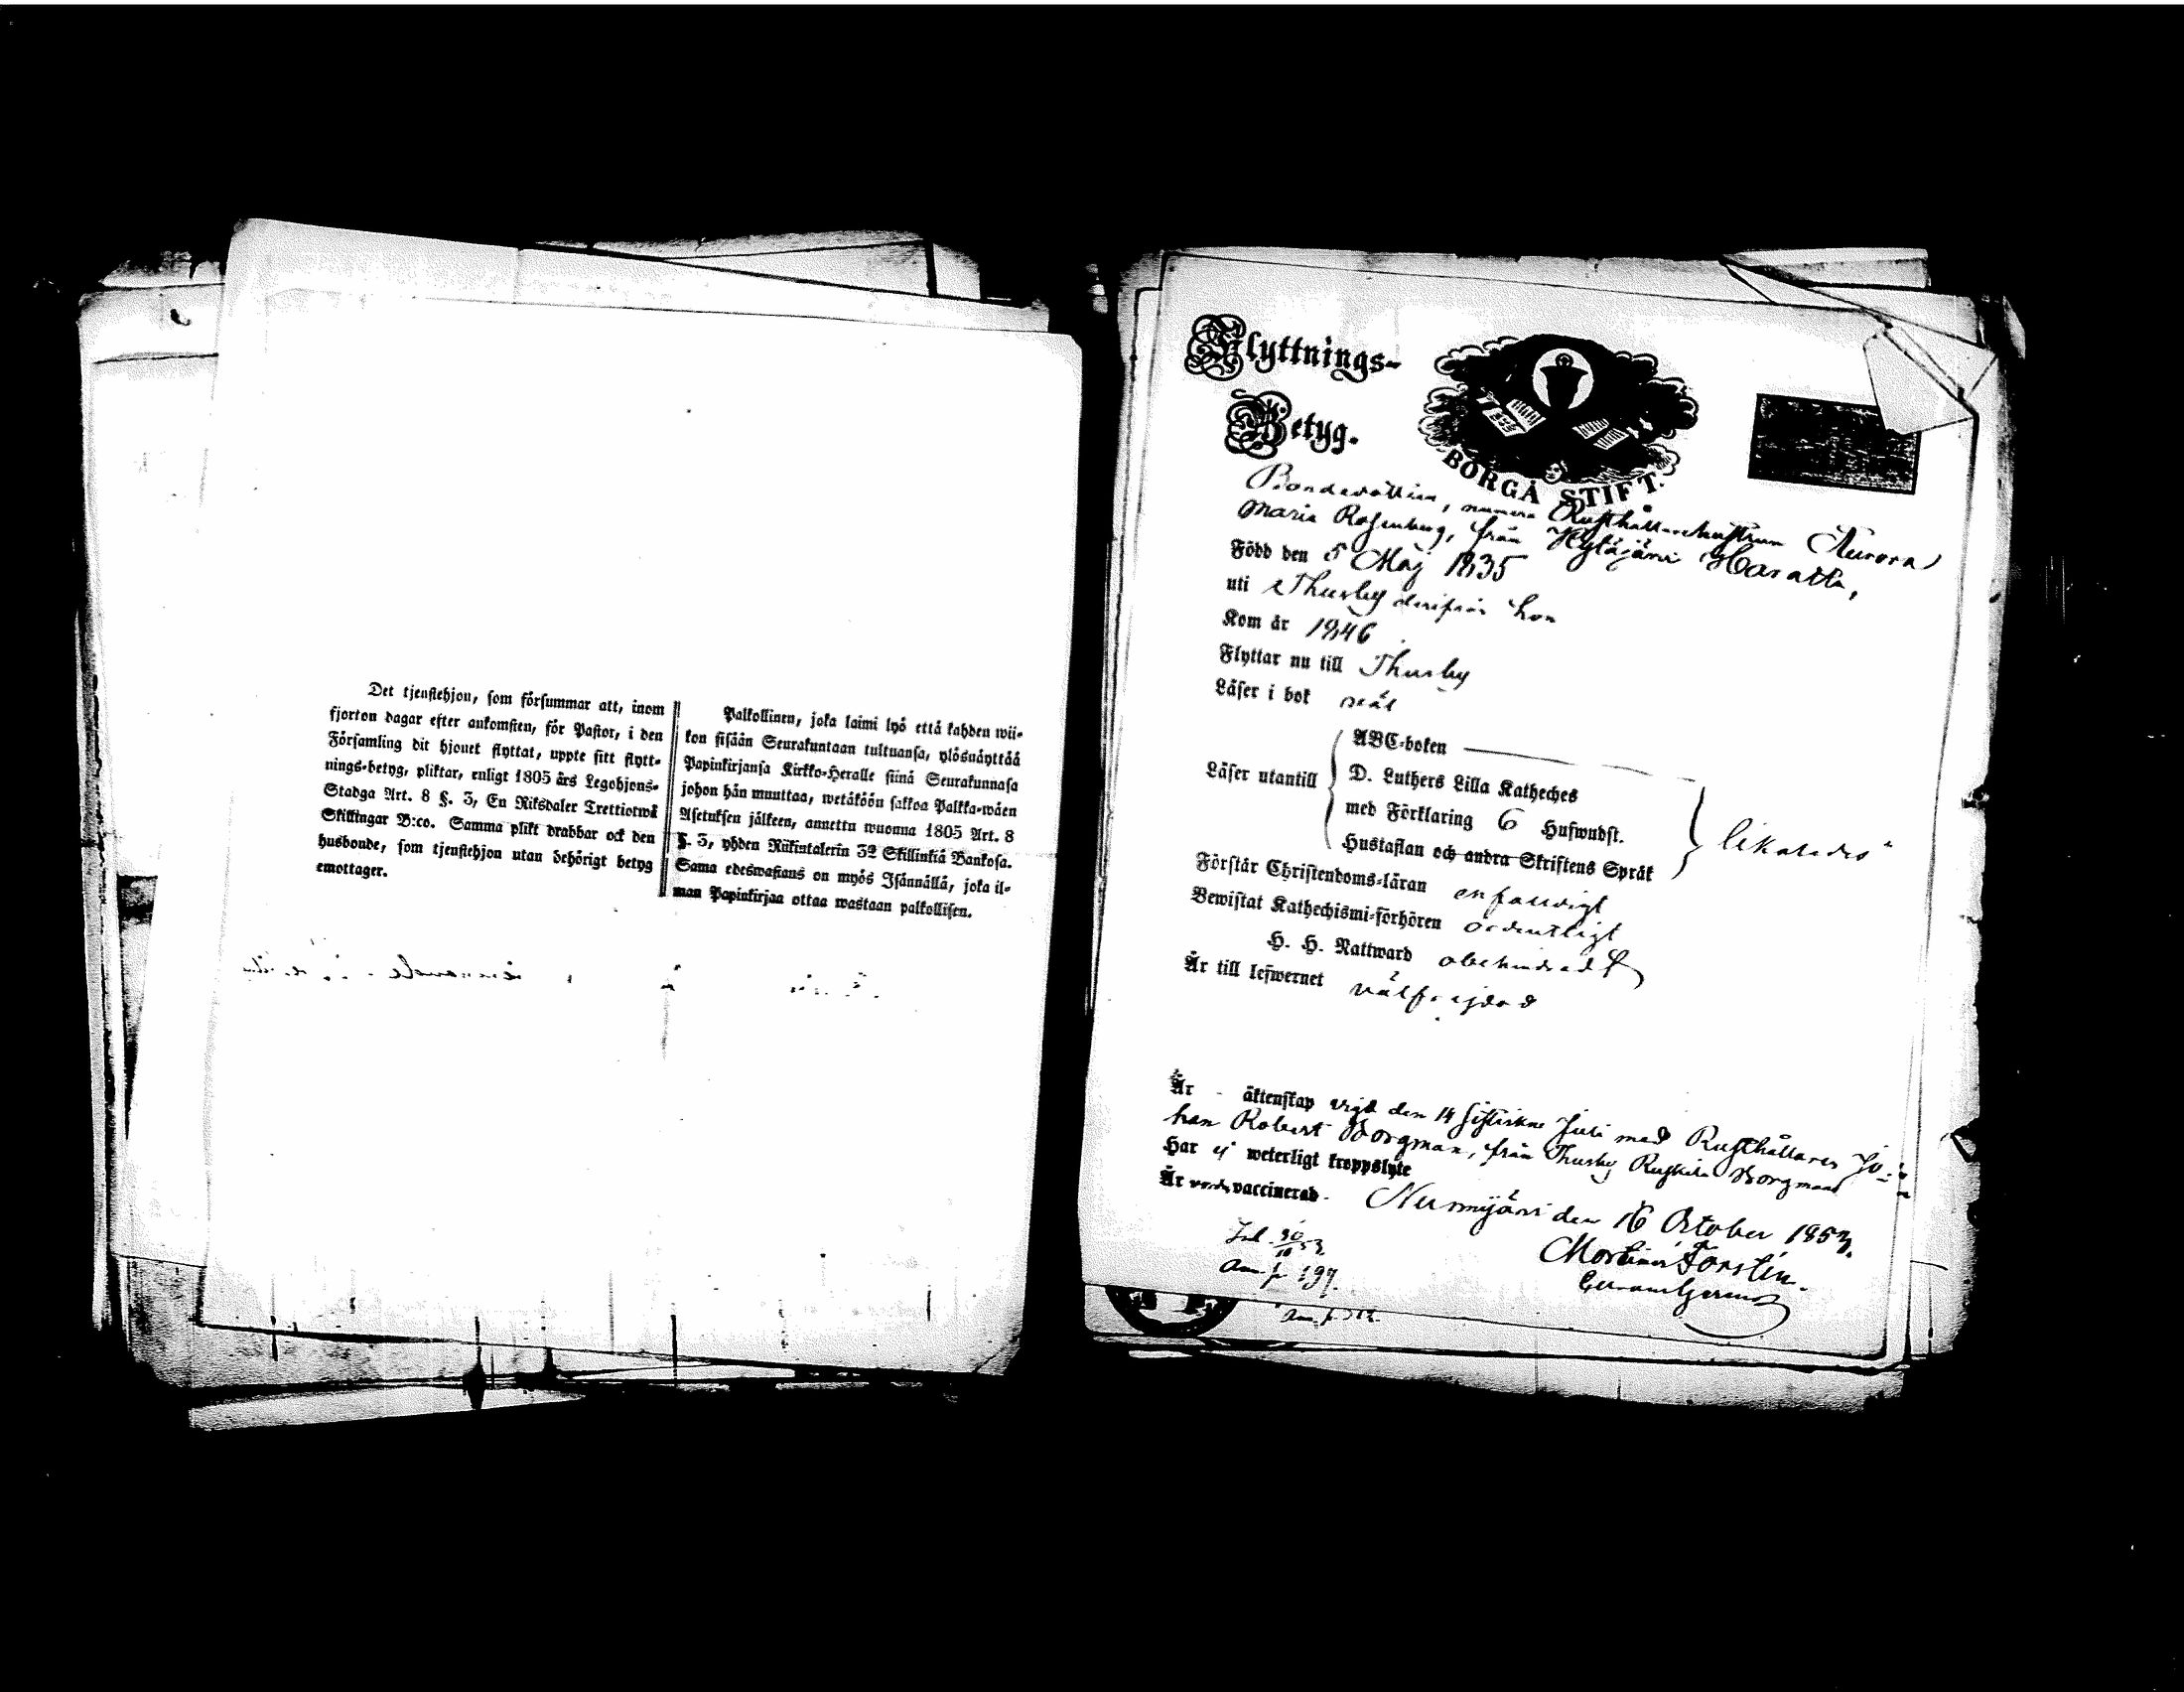 Det tjenstehjon, som försummar att, inom
fjorton dagar efter ankomsten, för Pastor, i den
Församling dit hjonet flyttat, uppte sitt flytt-
nings-betyg, pliktar, enligt 1805 års Legohjons-
Stadga Art. 8 §. 3, En Riksdaler Trettiotwå
Skillingar B:co. Samma plikt drabbar ock den
husbonde, som tjenstehjon utan behörigt betyg
emottager.
Palkollinen, joka laimi lyö että kahden wii-
kon sisään Seurakuntaan tultuansa, ylösnäyttää
Papinkirjansa Kirkko-Herralle siinä Seurakunnasa
johon hän muuttaa, wetäköön sakkoa Palkka-wäen
Asetuksen jälkeen, annettu wuonna 1805 Art. 8
§. 3, yhden Riikintalerin 32 Skillinkiä Bankosa.
Sama edeswastaus on myös Isännällä, joka il-
man Papinkirjaa ottaa wastaan palkollisen.
Flyttnings-
Betyg.
BORGÅ STIFT.
Bondedottren, numera Rusthållarehustrun Aurora
Maria Rosenberg, från Hyläjärvi Haratta,
Född den 5 Maj 1835
uti Thusby derifrån hon
Kom år 1846
Flyttar nu till Thusby
Läser i bok väl
Läser utantill
ABC-boken
D. Luthers Lilla Katheches
med Förklaring 6 Hufwudst.
Hustaflan och andra Skriftens Språk
likaledes
Förstår Christendoms-läran enfaldigt
Bewistat Kathechismi-förhören ordentligt
H. H. Nattward obehindrad
Är till lefwernet välfrejdad
Är äktenskap vigd den 14 sistlidne Juli med Rusthållaren Jo-
han Robert Borgman, från Thusby Ruskila Borgmans
Har ej weterligt kroppslyte
Är vaccinerad.
Nurmijärvi den 16 October 1853.
Inl. 30/10 53.
Ann. p. 197.
Forstén.